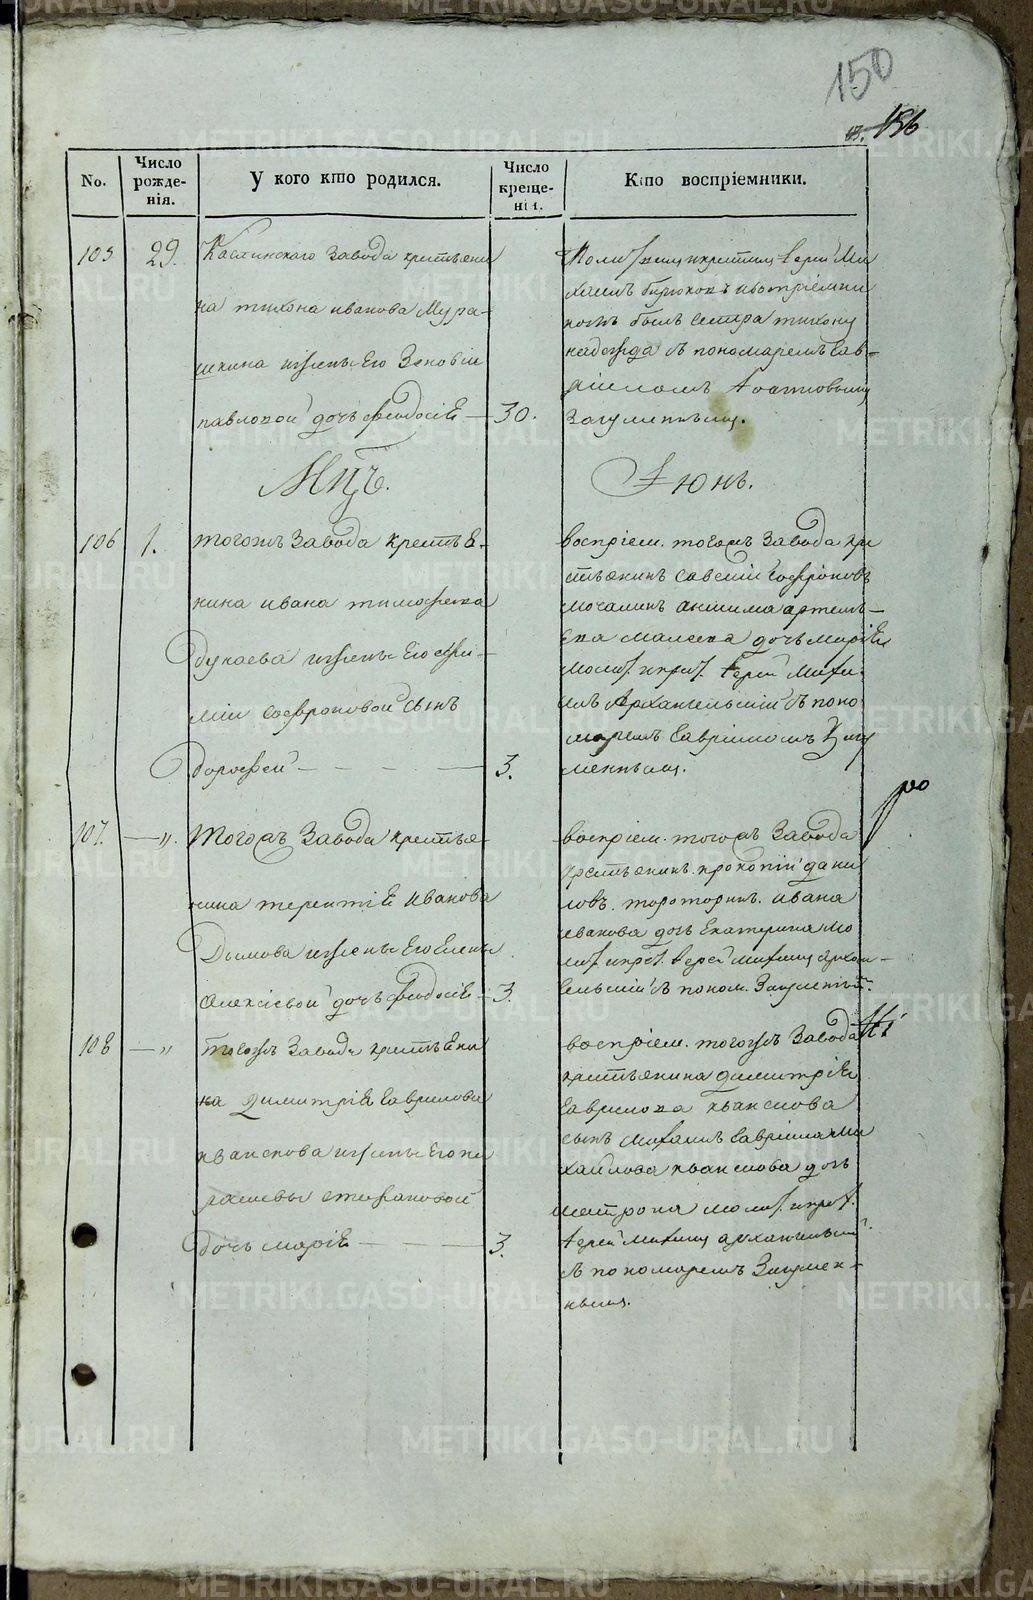 150
156
No.
Число рожде-нія.
У кого кто родился.
Число креще-нія.
Кто воспріемники.
105
29.
Каслинскаго завода крестьяни
на тихона иванова Мура-
шкина и жены Его Зеновіи
павловой дочь феодосіѣ — 30.
хаилъ бирюковъ и воспріемни
комъ былъ сестра тихону
надежда съ пономаремъ Гав-
Загуменнымъ.
Мцъ.
Іюнь.
106
1.
тогожъ завода крестьѣ-
нина ивана тимофеева
Дунаева и жены Его Ефи-
міи софроновой сынъ
дорофей — — — — 3.
воспріем. тогожъ завода кре
стьянинъ савелій софроновъ
мочалинъ анисима артемь-
ева малеева дочь маріѣ
молит. и крест. Іерей Михаи-
илъ Архангельскій съ поно
маремъ Гавріиломъ Загу
меннымъ.
107.
— „.
Тогожъ Завода крестья-
нина терентіѣ иванова
Дымова и жены Его Елены
Алексіевой дочь феодосіѣ — 3.
воспріем. тогожъ завода
крестьянинъ прокопій дани
ловъ тороторинъ. ивана
иванова дочь Екатерина мо
лит. и крест. Іерей михаилъ архан-
гельскій съ поном. Загуменнымъ.
108
— „
тогожъ завода крестьѣни
на димитріѣ гаврилова
кванскова и жены Его пе
лагеевы стефановой
дочь маріѣ — 3.
воспріем. тогожъ завода
крестьянина димитріѣ
гаврилова
сынъ михаилъ гавріила ми
хаилова дочь
матрона молит. и крест.
Іерей михаилъ архангельскій
съ пономаремъ Загумен-
нымъ.
METRIKI.GASO-URAL.RU